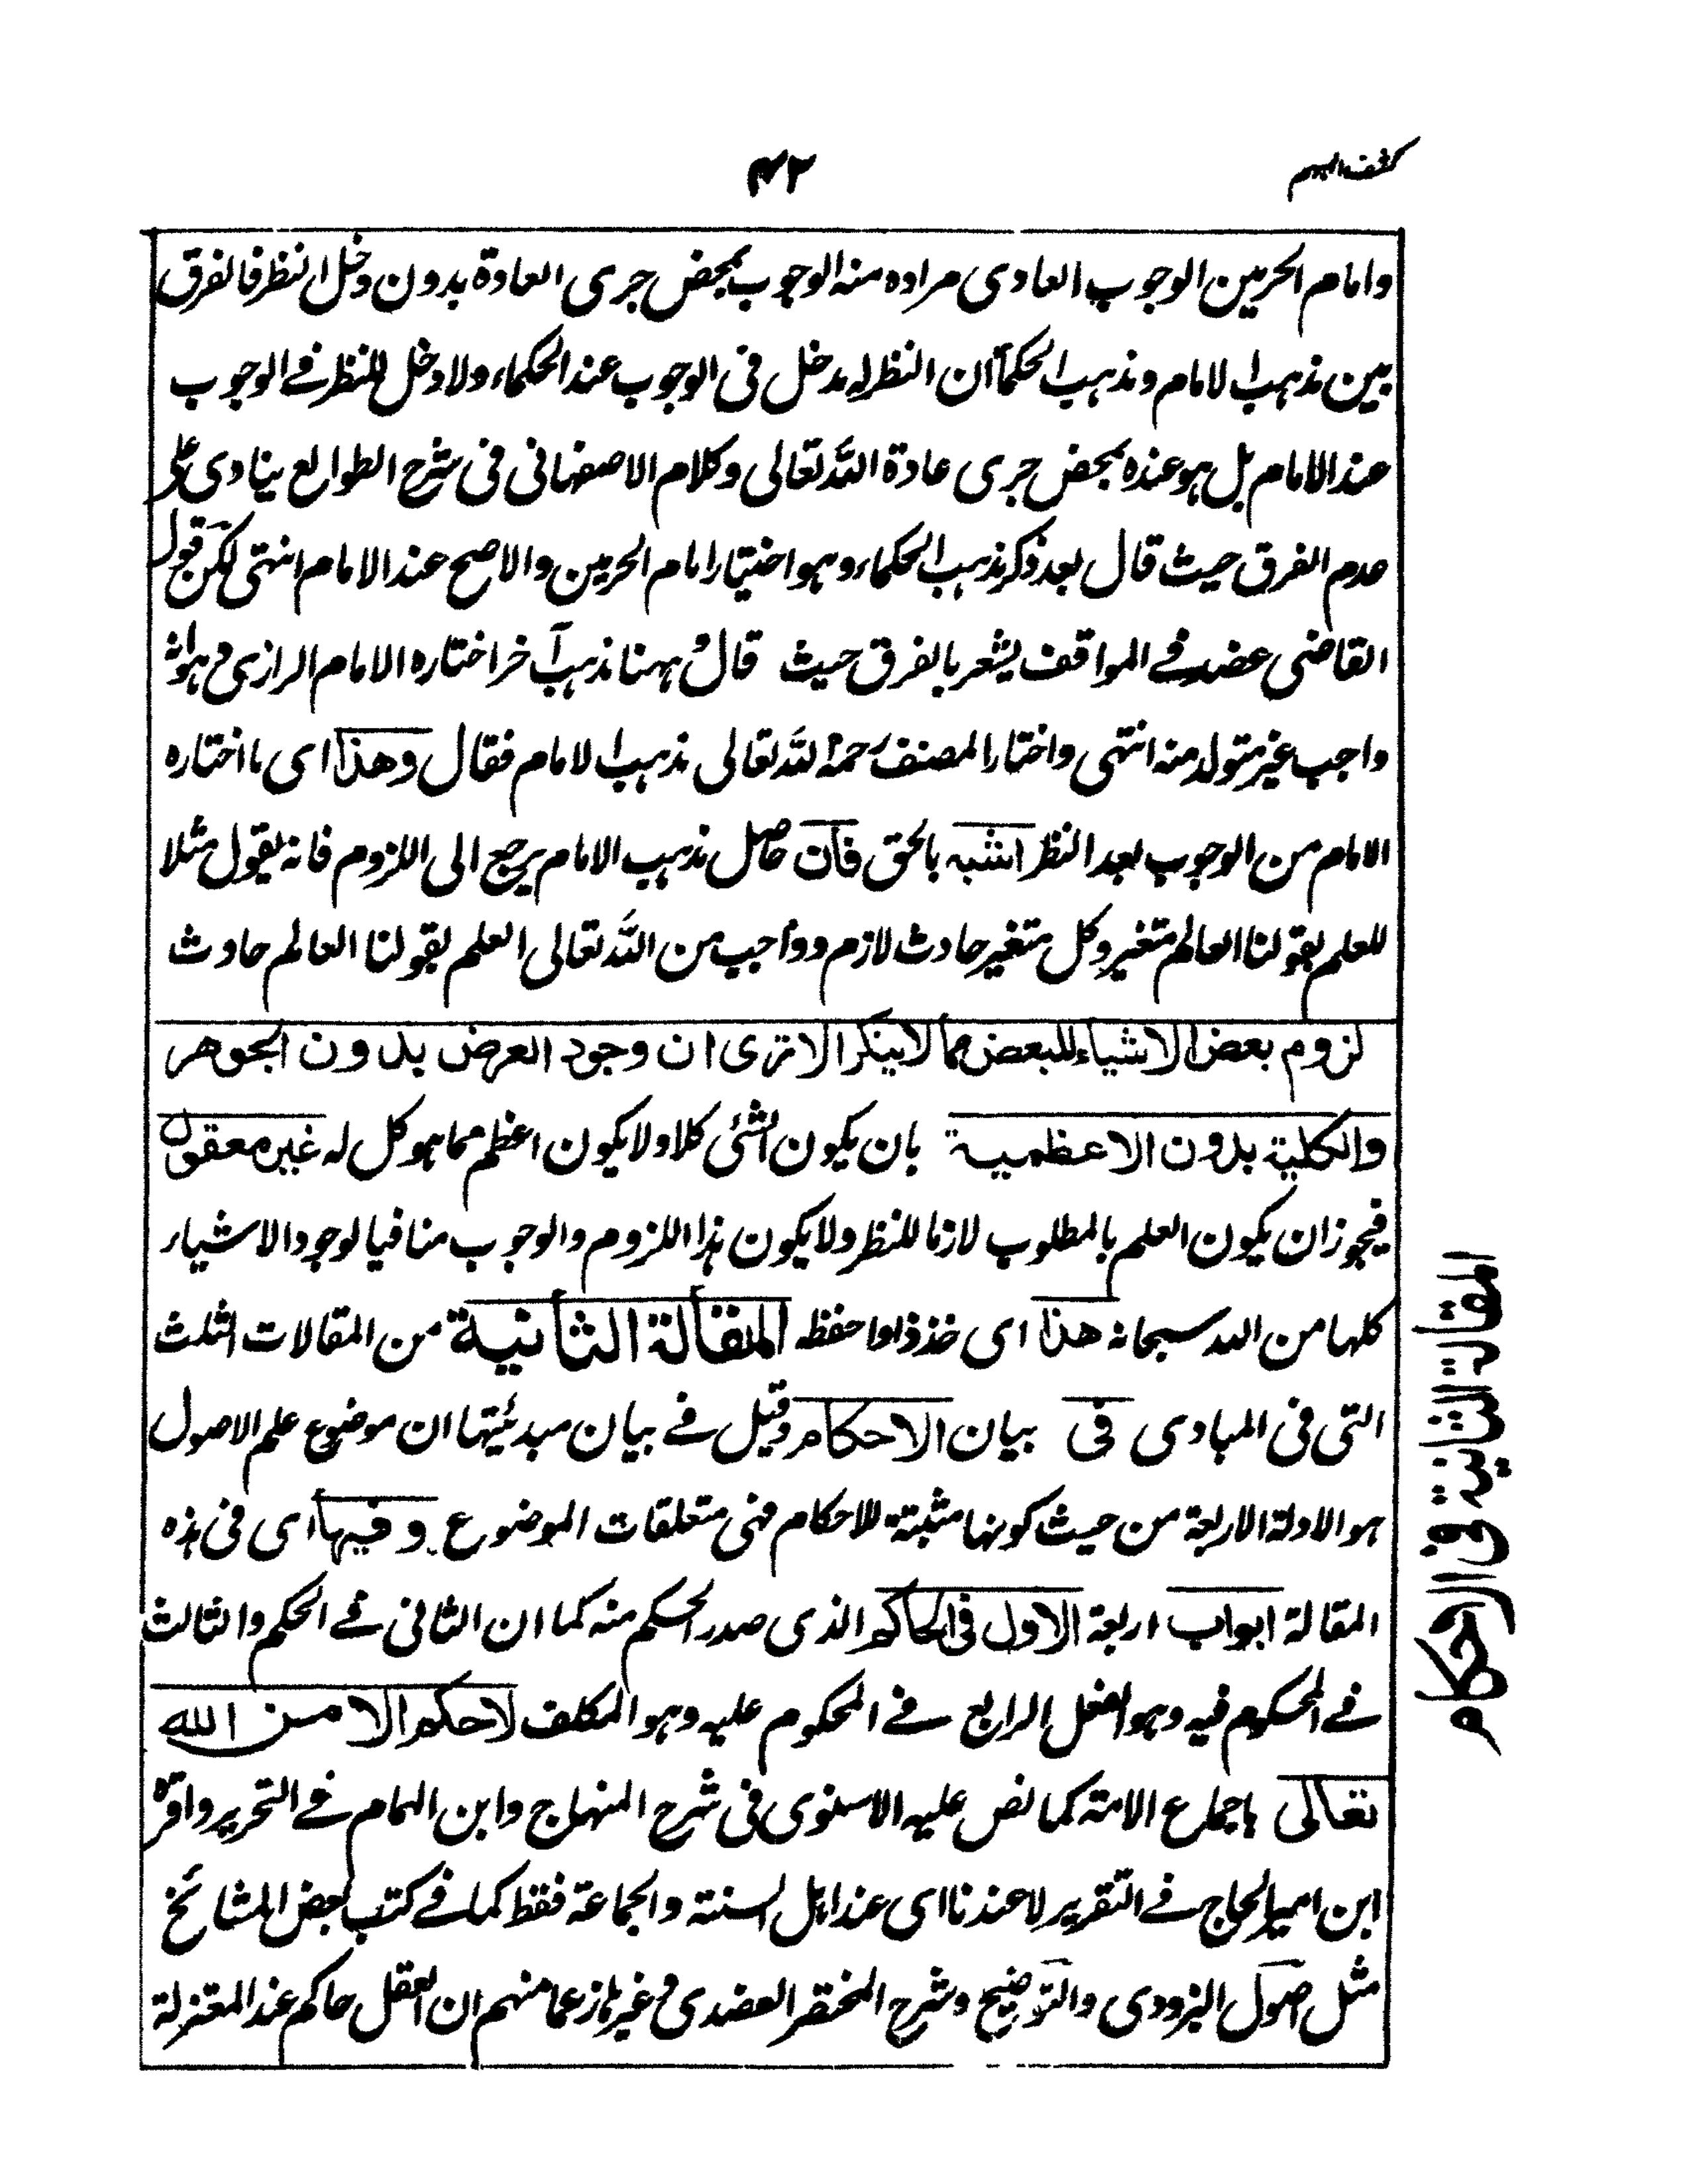 كشف المبهم
٤٢
وامام الحرمين الوجوب العادى مراده منه الوجوب بمحض جرى العادة بدون دخل النظر فالفرق
بين مذهب الامام ومذهب الحكماء ان النظر له مدخل فى الوجوب عند الحكماء ولا دخل للنظر فے الوجوب
عند الامام بل هو عنده بمحض جرى عادة الله تعالى وكلام الاصفهانى فى شرح الطوالع ينادى على
عدم الفرق حيث قال بعد ذكر مذهب الحكماء وهو اختيار امام الحرمين والاصح عند الامام انتهى لكن قول
القاضى عضد فے المواقف يشعر بالفرق حيث قال وههنا مذهب آخر اختاره الامام الرازى وهو انه
واجب غير متولد منه انتهى واختار المصنف رحمه الله تعالى مذهب الامام فقال وهذا اى ما اختاره
الامام من الوجوب بعد النظر اشبه بالحق فان حاصل مذهب الامام يرجع الى اللزوم فانه يقول مثلا
للعلم بقولنا العالم متغير وكل متغير حادث لازم وواجب من الله تعالى العلم بقولنا العالم حادث
لزوم بعض الاشياء للبعض مما لا ينكر الا ترى ان وجود العرض بدون الجوهر
والكلية بدون الاعظمية بان يكون الشئ كلا ولا يكون اعظم مما هو كل له غير معقول
فيجوز ان يكون العلم بالمطلوب لازما للنظر ولا يكون هذا اللزوم والوجوب منافيا لوجود الاشياء
كلها من الله سبحانه هذا اى خذ ذا واحفظه المقالة الثانية من المقالات الثلث
التى فى المبادى فى بيان الاحكام وقيل فے بيان مبدئيتها ان موضوع علم الاصول
هو الادلة الاربعة من حيث كونها مثبتة للاحكام فهى متعلقات الموضوع وفيها اى فى هذه
المقالة ابواب اربعة الاول فى الحاكم الذى صدر الحكم منه كما ان الثانى فے الحكم والثالث
فے المحكوم فيه وهو الفعل الرابع فے المحكوم عليه وهو المكلف لا حكم الا من الله
تعالى باجماع الامة كما نص عليه الاسنوى فى شرح المنهاج وابن الهمام فے التحرير واقره
ابن امير الحاج فے التقرير لا عندنا اى عند اهل السنة والجماعة فقط كما فے كتب بعض المشائخ
مثل اصول البزودى والتوضيح وشرح المختصر العضدى وغيرها زعما منهم ان العقل حاكم عند المعتزلة
المقالة الثانية فى الاحكام